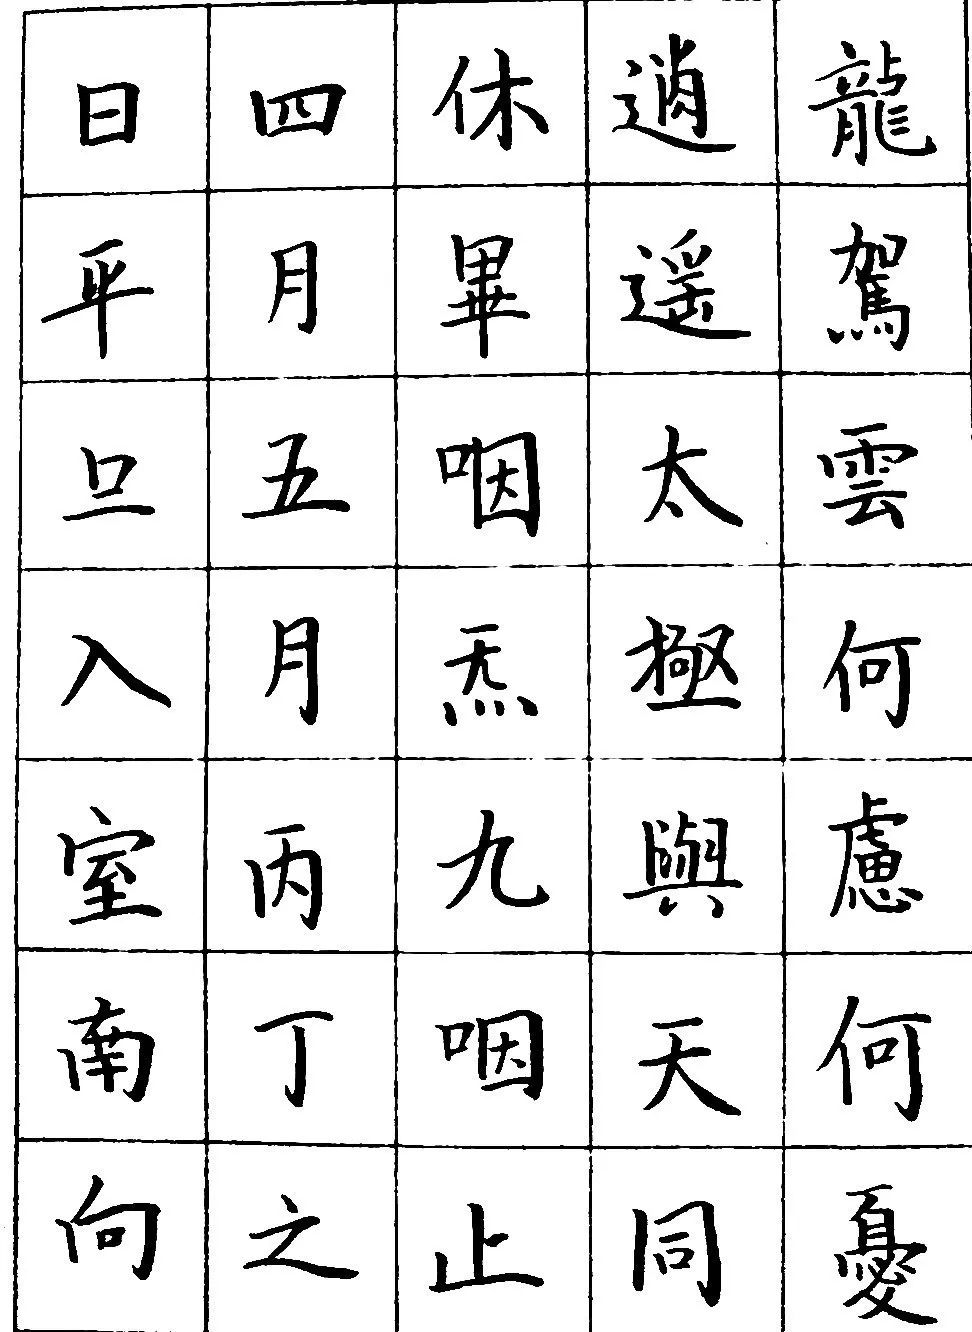 龍駕雲何慮何憂
逍遥太極與天同
休畢咽炁九咽止
四月五月丙丁之
日平旦入室南向